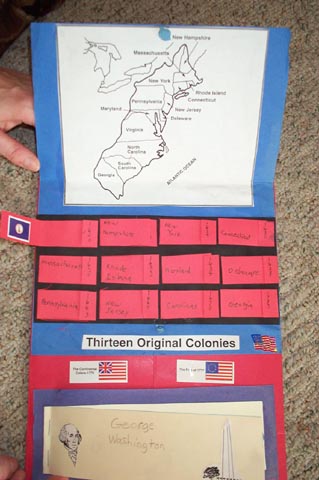 New Hampshire
Massachusetts
New York
Rhode Island
Connecticut
Pennsylvania
New Jersey
Maryland
Delaware
Virginia
North
Carolina
South
Carolina
Georgia
ATLANTIC OCEAN
New
Hampshire
New
York
Connecticut
Massachusetts
Rhode
Island
Maryland
Delaware
Pennsylvania
New
Jersey
Carolinas
Georgia
Thirteen Original Colonies
The Continental
Colors 1775
George
Washington